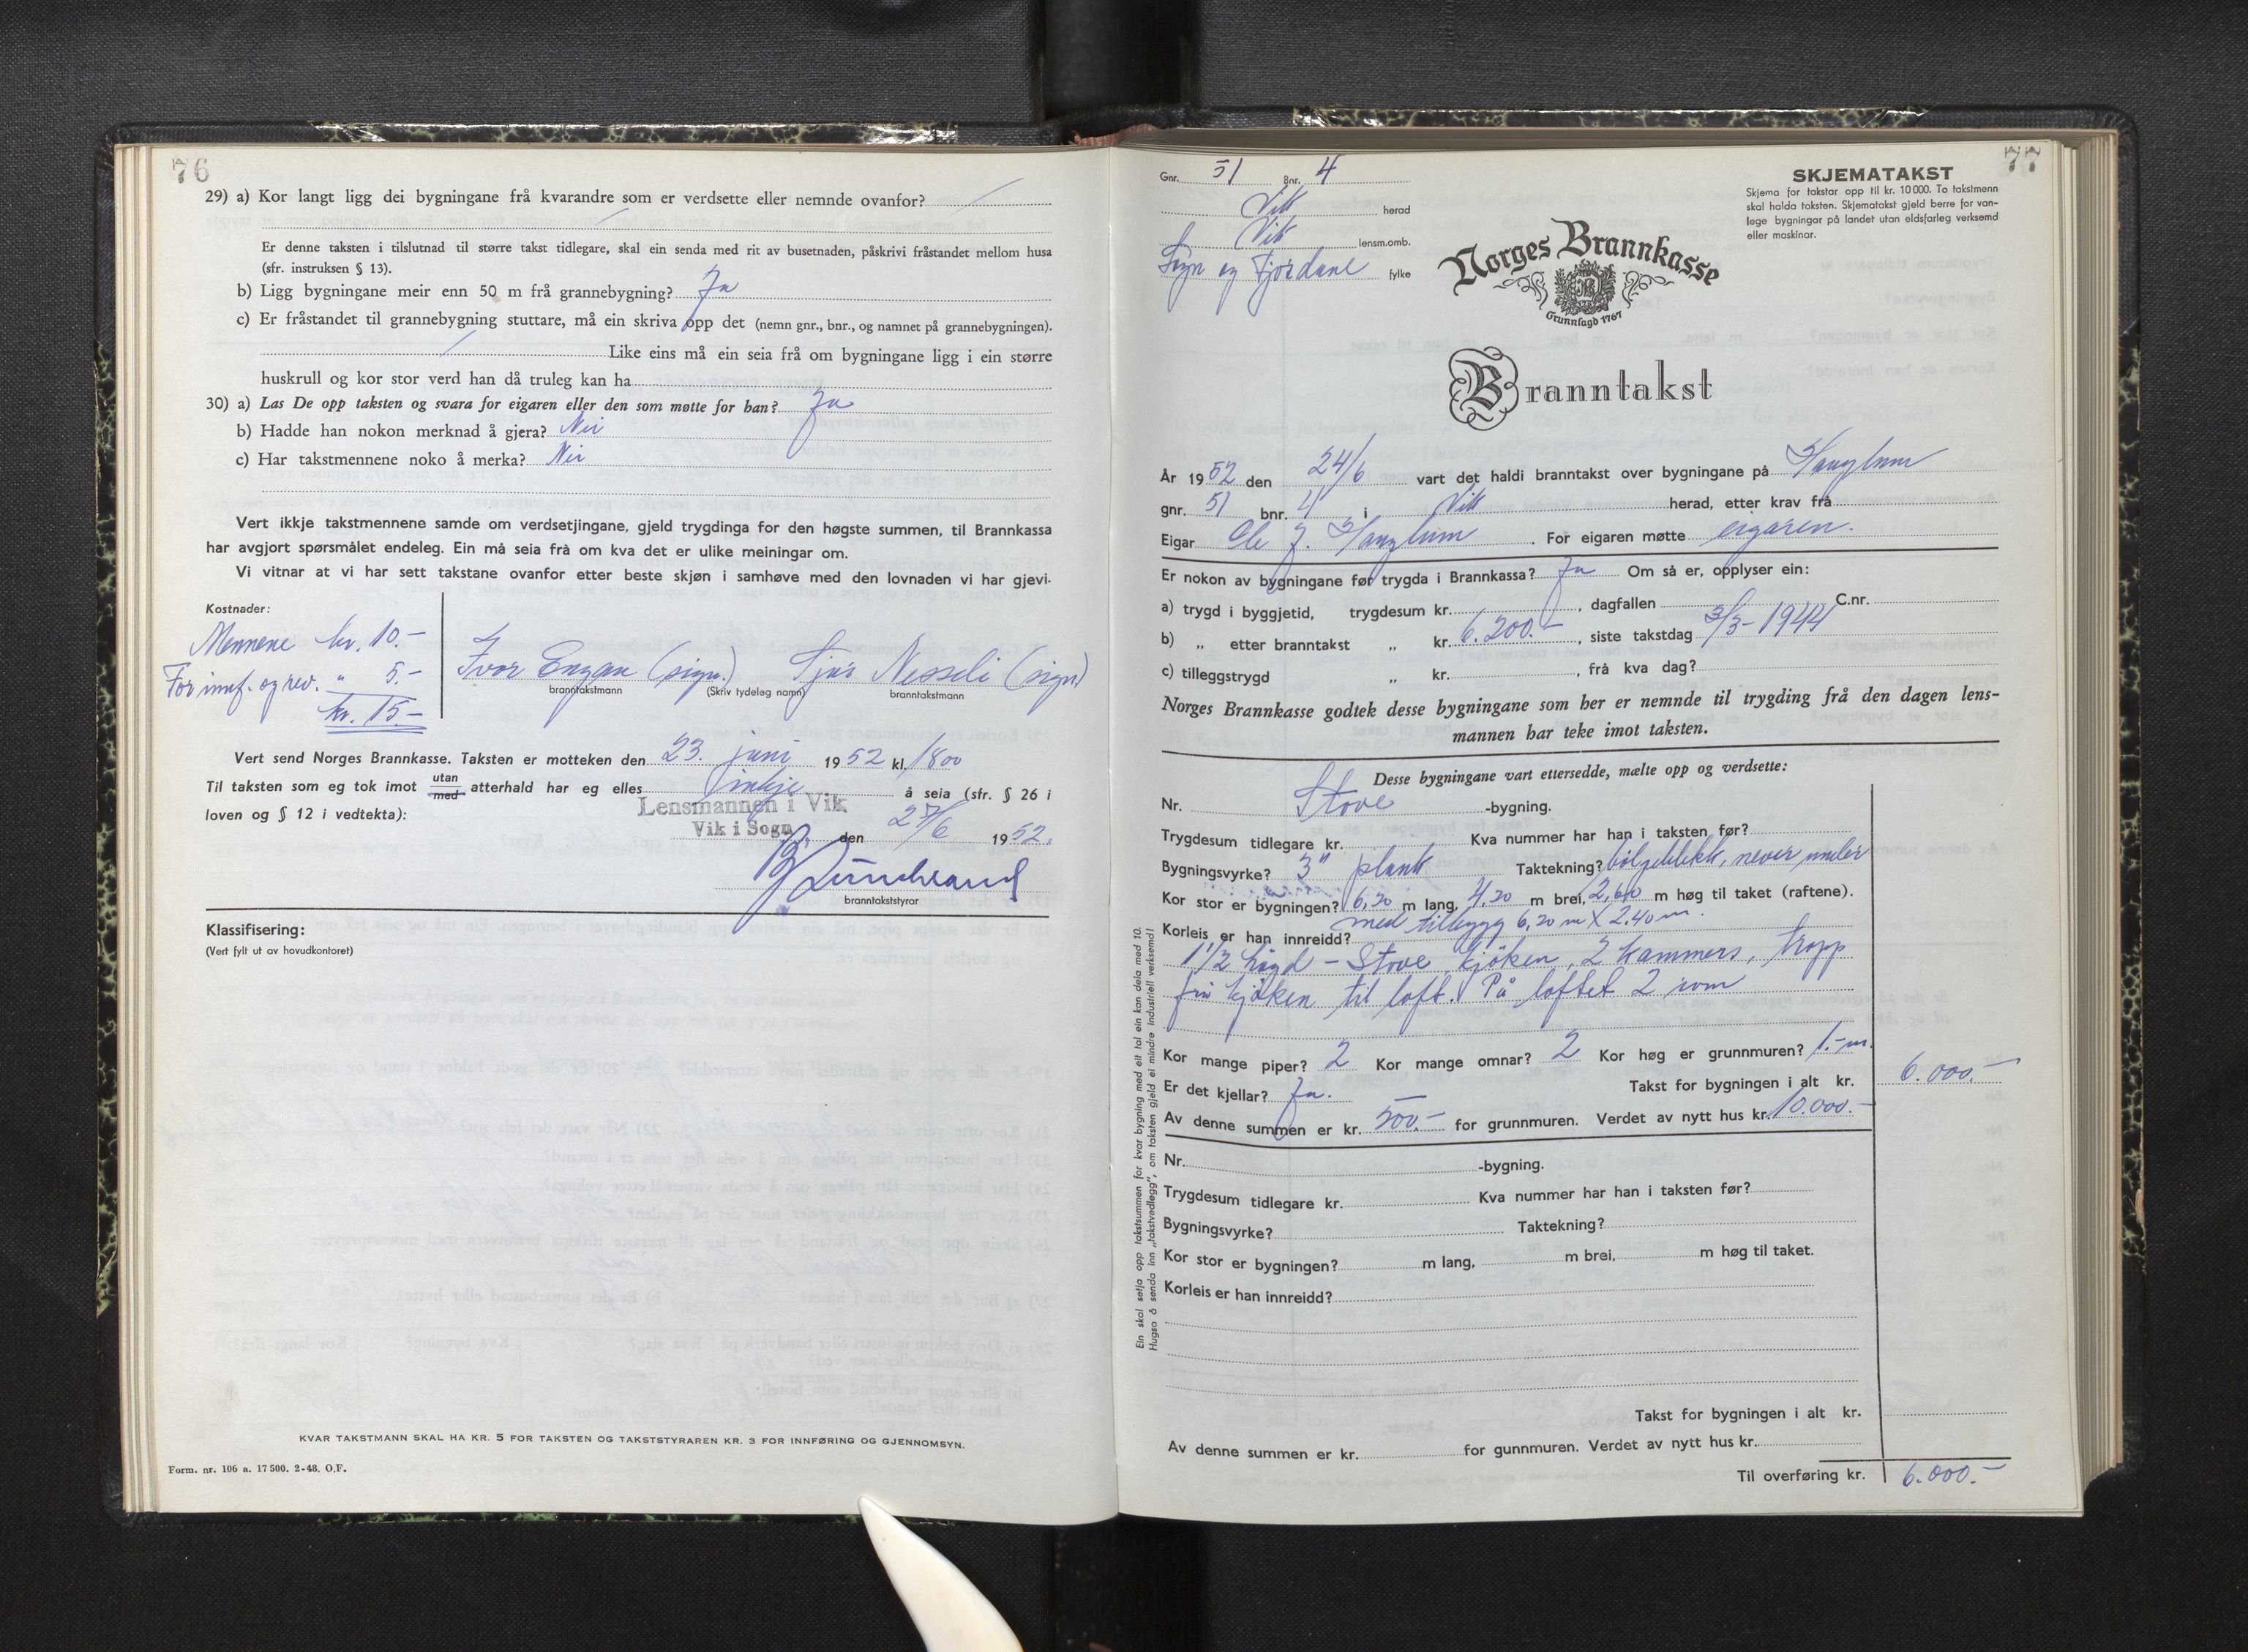 76
29) a) Kor langt ligg dei bygningane frå kvarandre som er verdsette eller nemnde ovanfor?
Er denne taksten i tilslutnad til større takst tidlegare, skal ein senda med rit av busetnaden, påskrivi fråstandet mellom husa
(sfr. instruksen § 13).
b) Ligg bygningane meir enn 50 m frå grannebygning? Ja
c) Er fråstandet til grannebygning stuttare, må ein skriva opp det (nemn gnr., bnr., og namnet på grannebygningen).
Like eins må ein seia frå om bygningane ligg i ein større
huskrull og kor stor verd han då truleg kan ha
30) a) Las De opp taksten og svara for eigaren eller den som møtte for han? Ja
b) Hadde han nokon merknad å gjera? Nei
c) Har takstmennene noko å merka? Nei
Vert ikkje takstmennene samde om verdsetjingane, gjeld trygdinga for den høgste summen, til Brannkassa
har avgjort spørsmålet endeleg. Ein må seia frå om kva det er ulike meiningar om.
Vi vitnar at vi har sett takstane ovanfor etter beste skjøn i samhøve med den lovnaden vi har gjevi.
Kostnader:
Mennene kr. 10.-
For innf. og rev. " 5.-
kr. 15.-
Ivar Engan (sign.) Sjur Nesseli (sign)
branntakstmann (Skriv tydeleg namn) branntakstmann
Vert send Norges Brannkasse. Taksten er motteken den 23. juni 1952 kl. 1800
Til taksten som eg tok imot utan/med atterhald har eg elles inkje å seia (sfr. § 26 i
loven og § 12 i vedtekta):
Lensmannen i Vik
Vik i Sogn den 27/6 1952.
branntakststyrar
Klassifisering:
(Vert fylt ut av hovudkontoret)
KVAR TAKSTMANN SKAL HA KR. 5 FOR TAKSTEN OG TAKSTSTYRAREN KR. 3 FOR INNFØRING OG GJENNOMSYN.
Form. nr. 106 a. 17500. 2-48. O.F.
77
Gnr. 51 Bnr. 4
Vik herad
Vik lensm.omb.
Sogn og Fjordane fylke
SKJEMATAKST
Skjema for takstar opp til kr. 10 000. To takstmenn
skal halda taksten. Skjematakst gjeld berre for van-
lege bygningar på landet utan eldsfarleg verksemd
eller maskinar.
Norges Brannkasse
Grunnlagd 1767
Branntakst
År 1952 den 24/6 vart det haldi branntakst over bygningane på Hanglum
gnr. 51 bnr. 4 i Vik herad, etter krav frå
Eigar Ole J. Hanglum . For eigaren møtte eigaren.
Er nokon av bygningane før trygda i Brannkassa? Ja Om så er, opplyser ein:
a) trygd i byggjetid, trygdesum kr. , dagfallen C.nr.
b) „ etter branntakst „ kr. 6.200.- , siste takstdag 3/3-1944
c) tilleggstrygd „ kr. , frå kva dag?
Norges Brannkasse godtek desse bygningane som her er nemnde til trygding frå den dagen lens-
mannen har teke imot taksten.
Desse bygningane vart ettersedde, mælte opp og verdsette:
Nr. Stove -bygning.
Trygdesum tidlegare kr. Kva nummer har han i taksten før?
Bygningsvyrke? 3" plank Taktekning? bølgeblikk, never under
Kor stor er bygningen? 6,20 m lang, 4.20 m brei, 2,60 m høg til taket (raftene).
med tilbygg 6,20 m X 2.40 m.
Korleis er han innreidd?
1 1/2 høgd - Stove, kjøken, 2 kammers, tropp
frå kjøken til loft. På loftet 2 rom
Kor mange piper? 2 Kor mange omnar? 2 Kor høg er grunnmuren? 1.- m.
Er det kjellar? Ja. Takst for bygningen i alt kr. 6.000.-
Av denne summen er kr. 500.- for grunnmuren. Verdet av nytt hus kr. 10.000.-
Nr. -bygning.
Trygdesum tidlegare kr. Kva nummer har han i taksten før?
Bygningsvyrke? Taktekning?
Kor stor er bygningen? m lang, m brei, m høg til taket.
Korleis er han innreidd?
Takst for bygningen i alt kr.
Av denne summen er kr. for gunnmuren. Verdet av nytt hus kr.
Til overføring kr. 6.000.-
Ein skal setja opp takstsummen for kvar bygning med eit tal ein kan dela med 10.
Hugsa å senda inn „takstvedlegg", om taksten gjeld ei mindre industriell verksemd!